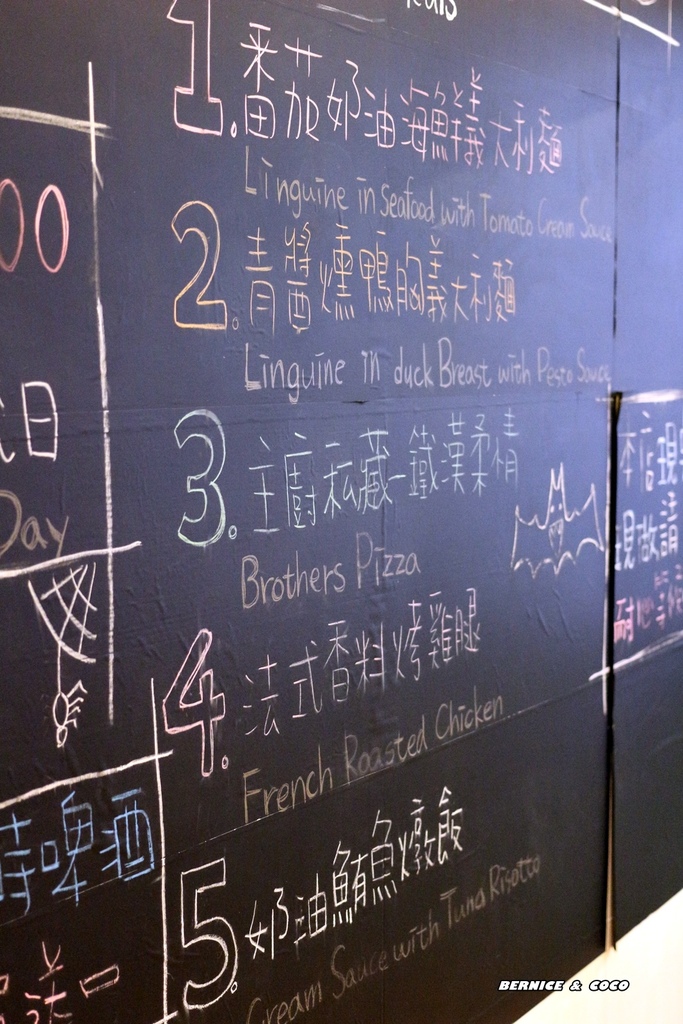 1. 番茄奶油海鮮義大利麵
Linguine in Seafood with Tomato Cream Sauce
2. 青醬燻鴨胸義大利麵
Linguine in duck Breast with Pesto Sauce
3. 主廚私藏-鐵漢柔情
Brothers Pizza
4. 法式香料烤雞腿
French Roasted Chicken
5. 奶油鮪魚燉飯
Cream Sauce with Tuna Risotto
00
日
Day
啤酒
送一
本店現
現做請
耐心等
BERNICE & COCO